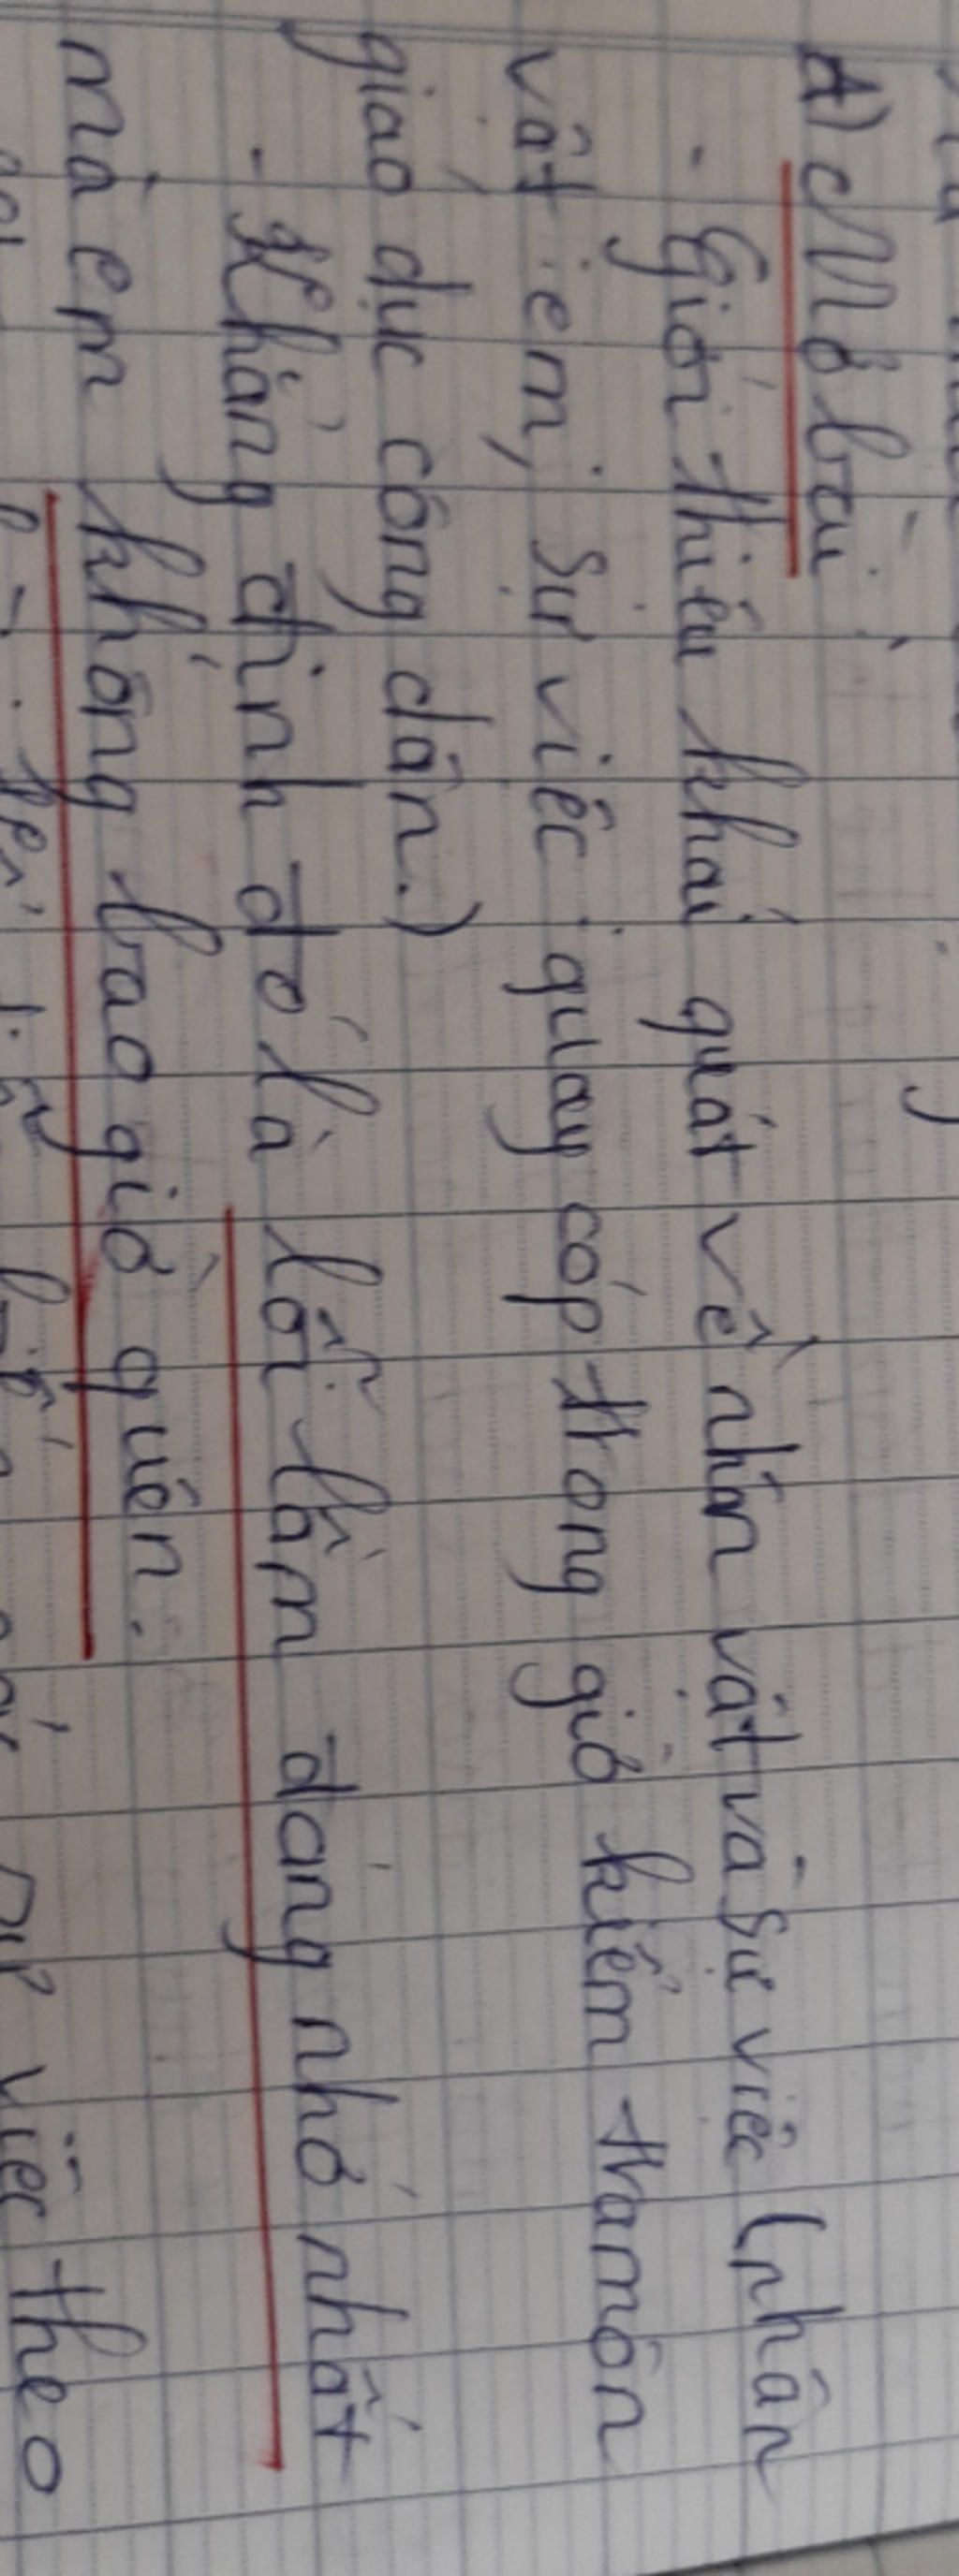 A) Mở bài
- Giới thiệu khái quát về nhân vật và sự việc (nhân
vật: em, sự việc: quay cóp trong giờ kiểm tra môn
giáo dục công dân.)
- Khẳng định đó là lỗi lầm đáng nhớ nhất
mà em không bao giờ quên.
việc theo